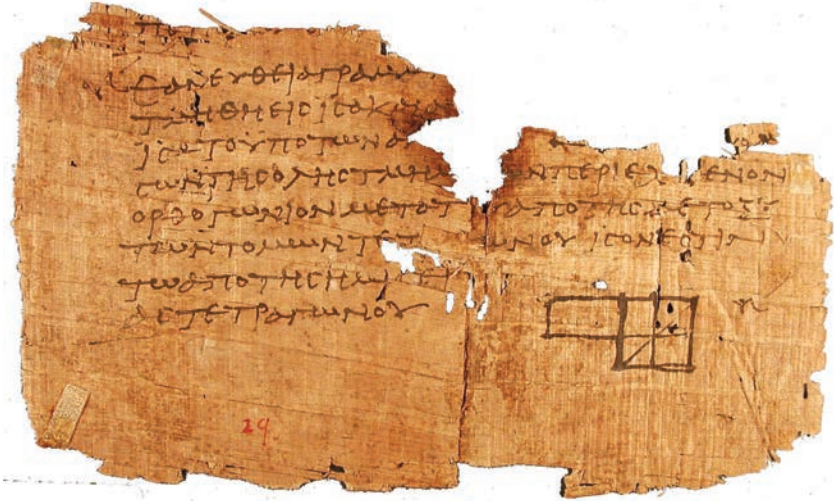 ΕΑΝΕΥΘΕΙΑΓΡΑΜΜ
ΤΜΗΘΗΕΙϹΙϹΑΚΑΙ
ΙϹΑΤΟΥΠΟΤΩΝΑ
ϹΩΝΤΗϹΟΛΗϹΤΜΗΜ ΩΝΠΕΡΙΕΧ ΕΝΟΝ
ΟΡΘΟΓΩΝΙΟΝΜΕΤΑΤ ΑΠΟΤΗϹΜΕΤΟΞΥ
ΤΩΝΤΟΜΩΝΤΕΤ ΩΝΟΥΙϹΟΝΕϹΤΙΝ
ΤΩΑΠΟΤΗϹΗΜΙϹΕΙ
ΑϹΤΕΤΡΑΓΩΝΟΥ
29